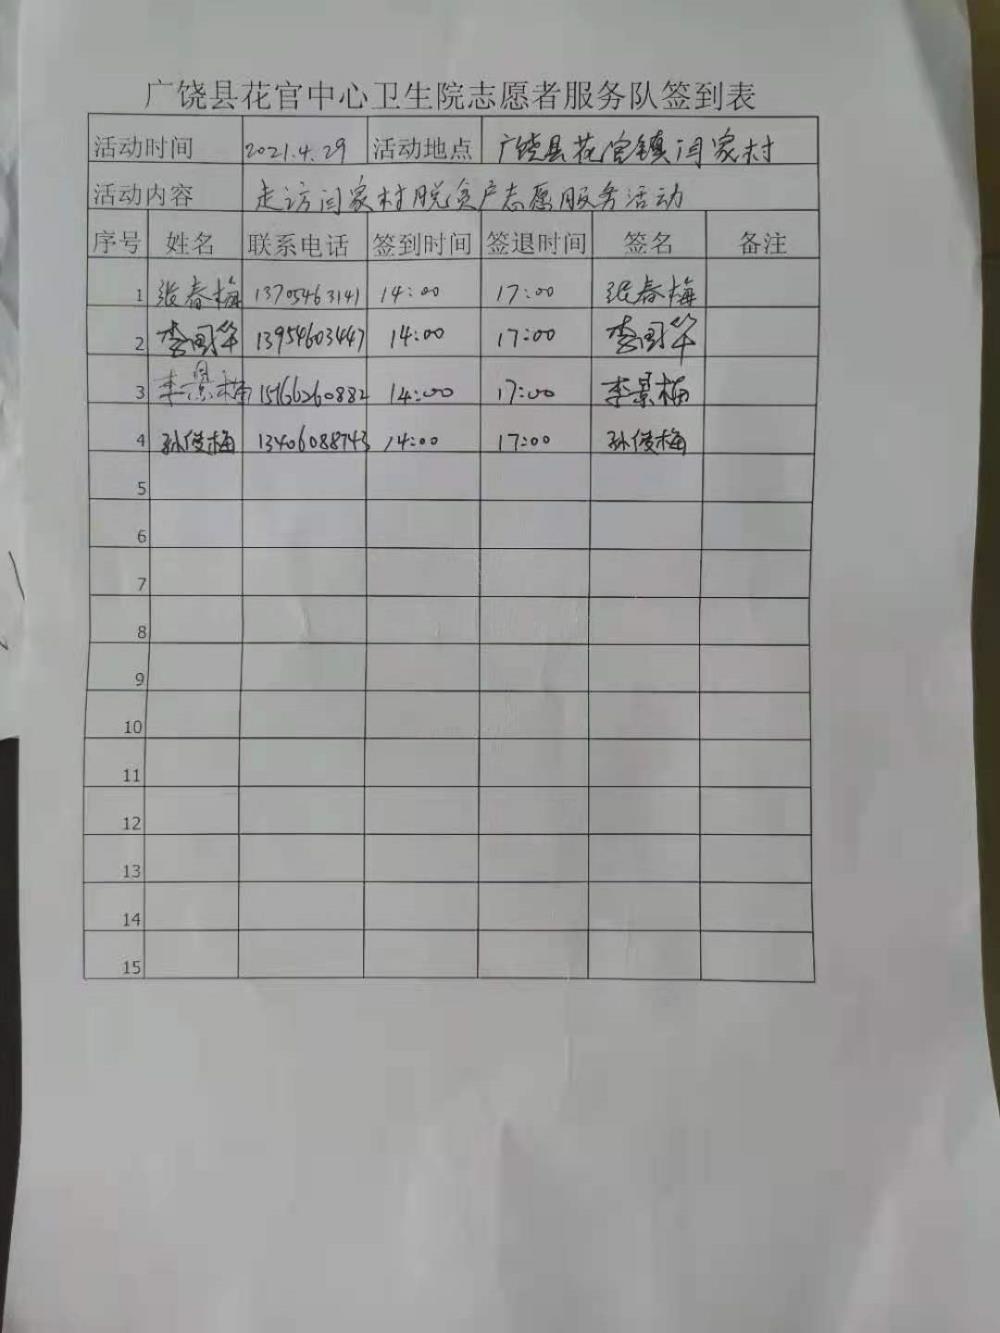 广饶县花官中心卫生院志愿者服务队签到表
活动时间 2021.4.29 活动地点 广饶县花官镇闫家村
活动内容 走访闫家村脱贫户志愿服务活动
序号 姓名 联系电话 签到时间 签退时间 签名 备注
1 张春梅 13705463141 14:00 17:00 张春梅
2 李国华 13954603447 14:00 17:00 李国华
3 李景梅 15166260882 14:00 17:00 李景梅
4 孙俊梅 13406088743 14:00 17:00 孙俊梅
5
6
7
8
9
10
11
12
13
14
15